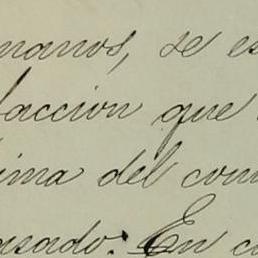 manos, se es
faccion que
ima del com
asado. En c